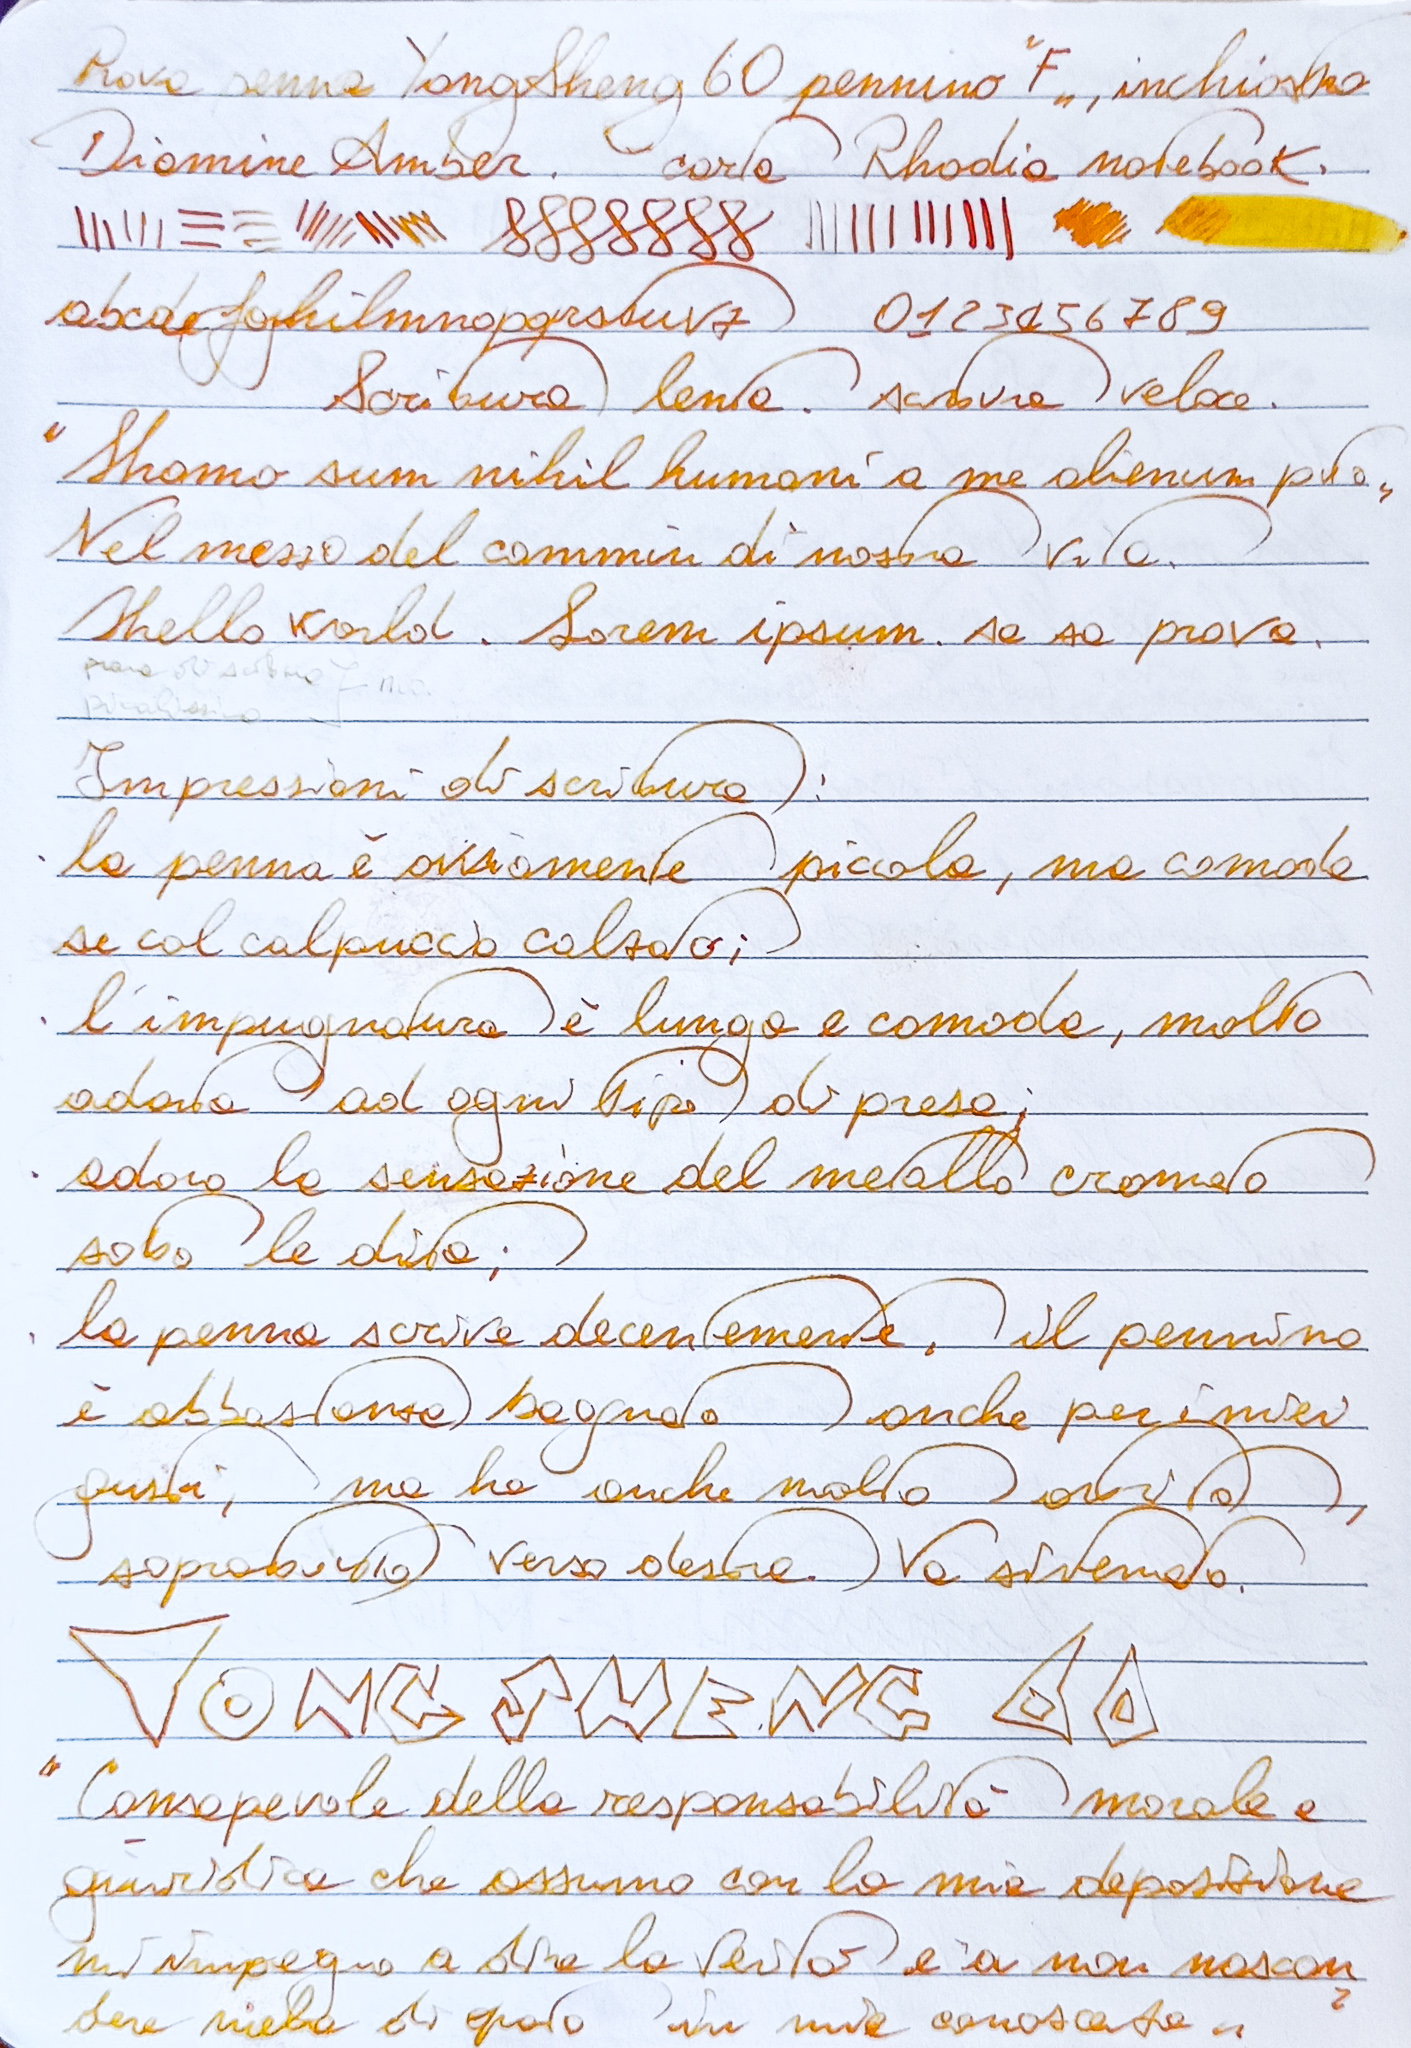 Prova penna YongSheng 60 pennino "F", inchiostro
Diamine Amber. carta Rhodia notebook.
abcdefghilmnopqrstuvz 0123456789
Scrittura lenta. scrittura veloce.
"Homo sum nihil humani a me alienum puto"
Nel mezzo del cammin di nostra vita.
Hello World. Lorem ipsum. sa sa prova.
prova di scrittura
Impressioni di scrittura:
la penna è ovviamente piccola, ma comoda
se col calpuccio calzato;
l'impugnatura è lunga e comoda, molto
adatta ad ogni tipo di presa;
adoro la sensazione del metallo cromato
sotto le dita;
la penna scrive decentemente, il pennino
è abbastanza bagnato anche per i miei
gusti, ma ha anche molto attrito,
soprattutto verso destra. Va sistemato.
YONG SHENG 60
"Consapevole della responsabilità morale e
giuridica che assumo con la mia deposizione
mi impegno a dire la verità e a non nascon
dere nulla di quato in mia conoscenza"